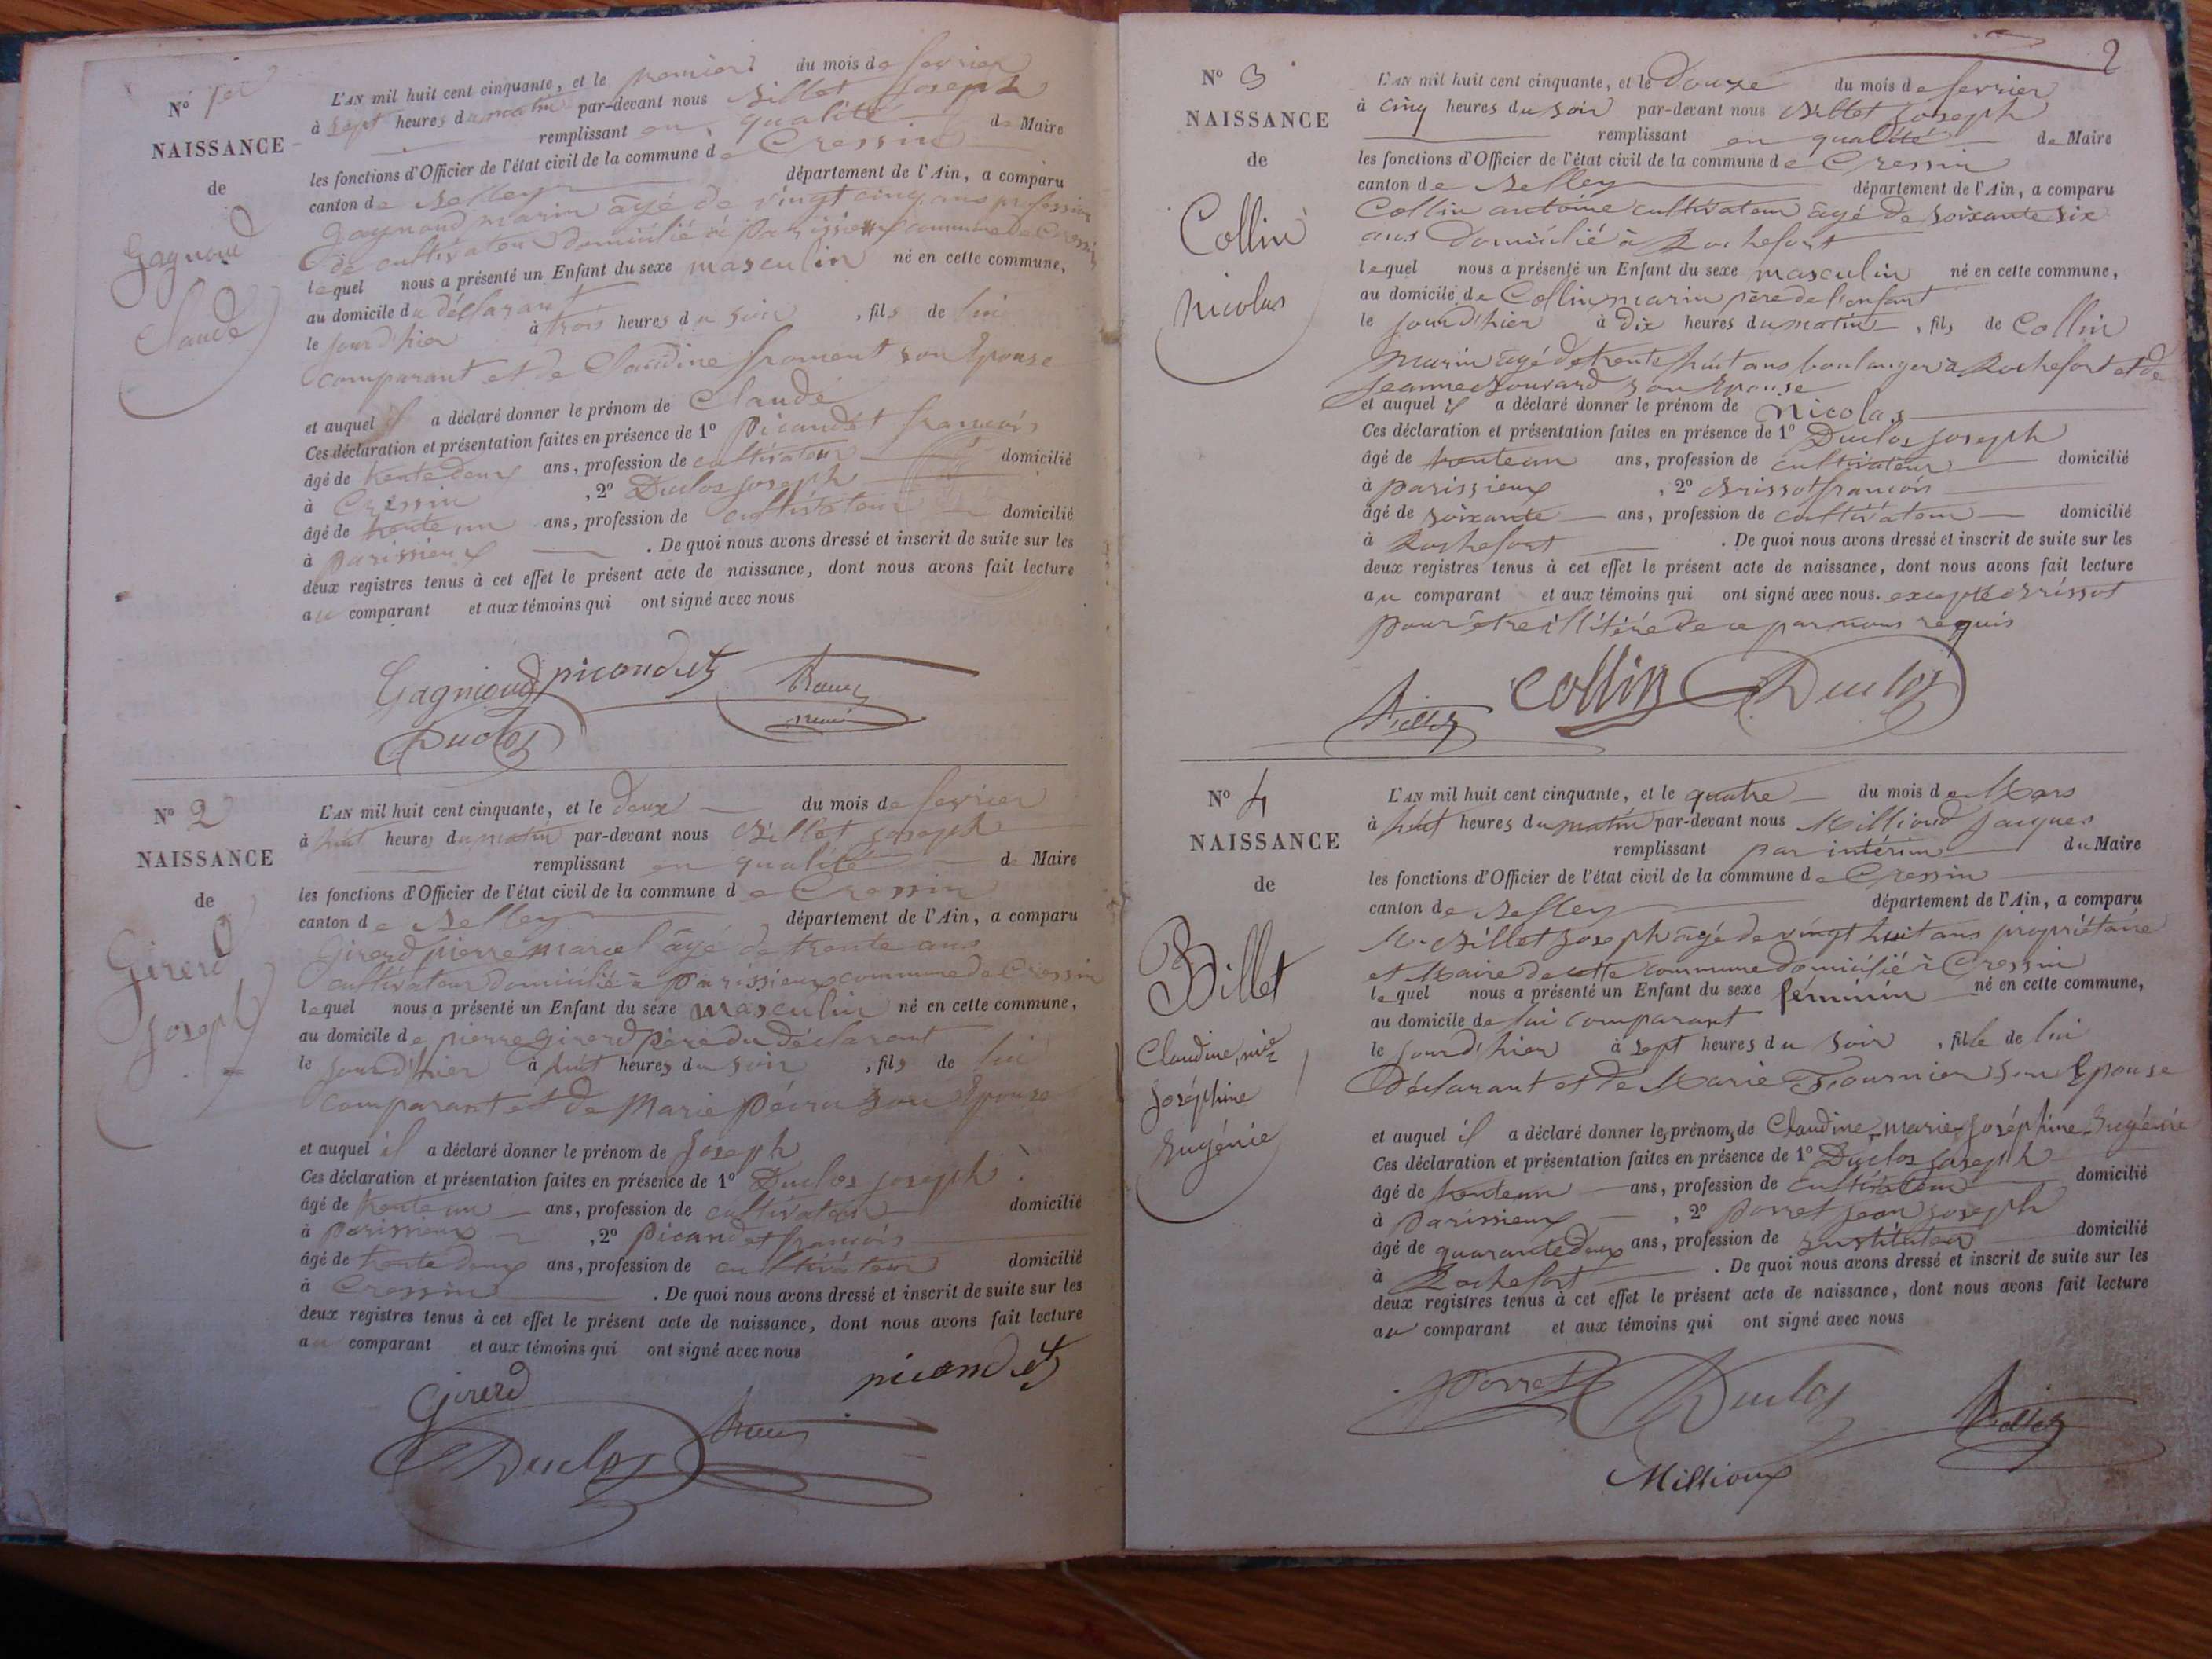 N° 1er
NAISSANCE
de
Gagnoud
Claude
L'AN mil huit cent cinquante, et le premier du mois de fevrier
à sept heures du matin par-devant nous Billet Joseph
remplissant en qualité de Maire
les fonctions d'Officier de l'état civil de la commune de Cressin
canton de Belley département de l'Ain, a comparu
Gagnoud marin âgé de vingt cinq ans profession
de cultivateur domicilié à Parissieux commune de Cressin
lequel nous a présenté un Enfant du sexe masculin né en cette commune,
au domicile du déclarant
le jour d'hier à trois heures du soir, fils de lui
comparant et de Claudine froment son Epouse
et auquel il a déclaré donner le prénom de Claude
Ces déclaration et présentation faites en présence de 1° Picandet françois
âgé de trente deux ans, profession de cultivateur domicilié
à Cressin, 2° Duclos Joseph
âgé de trente un ans, profession de cultivateur domicilié
à parissieux. De quoi nous avons dressé et inscrit de suite sur les
deux registres tenus à cet effet le présent acte de naissance, dont nous avons fait lecture
au comparant et aux témoins qui ont signé avec nous
Gagnioud picandet
Duclos
N° 2
NAISSANCE
de
Girerd
Joseph
L'AN mil huit cent cinquante, et le deux du mois de fevrier
à huit heures du matin par-devant nous Billet Joseph
remplissant en qualité de Maire
les fonctions d'Officier de l'état civil de la commune de Cressin
canton de Belley département de l'Ain, a comparu
Girerd pierre marcel âgé de trente ans
cultivateur domicilié à Parissieux commune de Cressin
lequel nous a présenté un Enfant du sexe masculin né en cette commune,
au domicile de pierre Girerd père du déclarant
le jour d'hier à huit heures du soir, fils de lui
comparant et de Marie son Epouse
et auquel il a déclaré donner le prénom de Joseph
Ces déclaration et présentation faites en présence de 1° Duclos Joseph
âgé de trente un ans, profession de cultivateur domicilié
à parissieux, 2° Picandet françois
âgé de trente deux ans, profession de cultivateur domicilié
à Cressin. De quoi nous avons dressé et inscrit de suite sur les
deux registres tenus à cet effet le présent acte de naissance, dont nous avons fait lecture
au comparant et aux témoins qui ont signé avec nous
Girerd picandet
Duclos
2
N° 3
NAISSANCE
de
Collin
Nicolas
L'AN mil huit cent cinquante, et le douze du mois de fevrier
à cinq heures du soir par-devant nous Billet Joseph
remplissant en qualité de Maire
les fonctions d'Officier de l'état civil de la commune de Cressin
canton de Belley département de l'Ain, a comparu
Collin antoine cultivateur âgé de soixante six
ans domicilié à Rochefort
lequel nous a présenté un Enfant du sexe masculin né en cette commune,
au domicile de Collin marin père de l'enfant
le jour d'hier à dix heures du matin, fils de Collin
Marin âgé de trente huit ans boulanger à Rochefort et de
Jeanne Bouvard son Epouse
et auquel il a déclaré donner le prénom de Nicolas
Ces déclaration et présentation faites en présence de 1° Duclos Joseph
âgé de trente un ans, profession de cultivateur domicilié
à parissieux, 2° Brissot françois
âgé de soixante ans, profession de cultivateur domicilié
à Rochefort. De quoi nous avons dressé et inscrit de suite sur les
deux registres tenus à cet effet le présent acte de naissance, dont nous avons fait lecture
au comparant et aux témoins qui ont signé avec nous. excepté Brissot
pour être illitéré de ce par nous requis
Billet Collin Duclos
N° 4
NAISSANCE
de
Billet
Claudine, mie
Joséphine
Eugénie
L'AN mil huit cent cinquante, et le quatre du mois de Mars
à huit heures du matin par-devant nous Millioud Jacques
remplissant par intérim du Maire
les fonctions d'Officier de l'état civil de la commune de Cressin
canton de Belley département de l'Ain, a comparu
M. Billet Joseph âgé de vingt huit ans propriétaire
et Maire de cette commune domicilié à Cressin
lequel nous a présenté un Enfant du sexe féminin né en cette commune,
au domicile de lui comparant
le jour d'hier à sept heures du soir, fille de lui
déclarant et de Marie Fournier son Epouse
et auquel il a déclaré donner les prénoms de Claudine, marie, Joséphine, Eugénie
Ces déclaration et présentation faites en présence de 1° Duclos Joseph
âgé de trente un ans, profession de cultivateur domicilié
à Parissieux, 2° porret Jean Joseph
âgé de quarante deux ans, profession de instituteur domicilié
à Rochefort. De quoi nous avons dressé et inscrit de suite sur les
deux registres tenus à cet effet le présent acte de naissance, dont nous avons fait lecture
au comparant et aux témoins qui ont signé avec nous
Porret Duclos Billet
Millioux